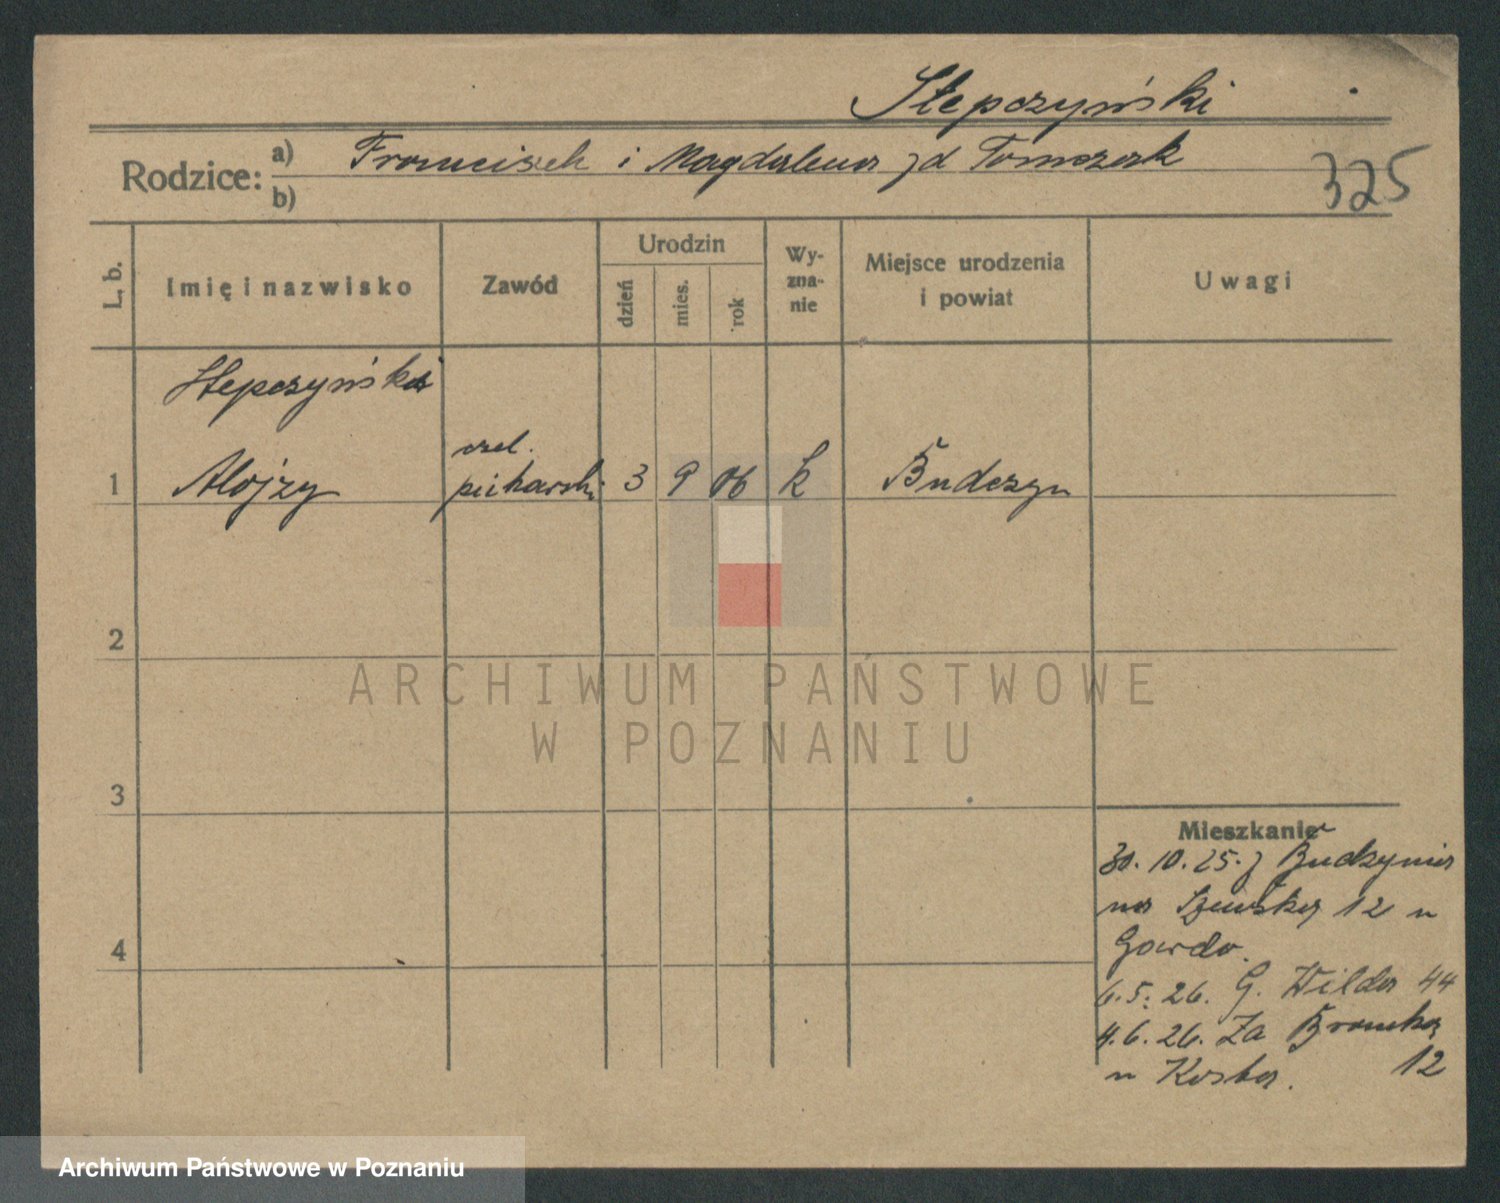 Stepczyński
Rodzice: a) Franciszek i Magdalena zd Tomczak
b)
325
L. b.
Imię i nazwisko
Zawód
Urodzin
dzień
mies.
rok
Wy-
zna-
nie
Miejsce urodzenia
i powiat
Uwagi
Stepczyński
czel.
1 Alojzy piekarski 3 9 06 k Budczyn
2
3
4
ARCHIWUM PAŃSTWOWE
W POZNANIU
Mieszkanie
30.10.25. z Budzynia
na Szewską 12 u
6.5.26. G. Wilda 44
4.6.26. Za Bramką
12
u
Archiwum Państwowe w Poznaniu